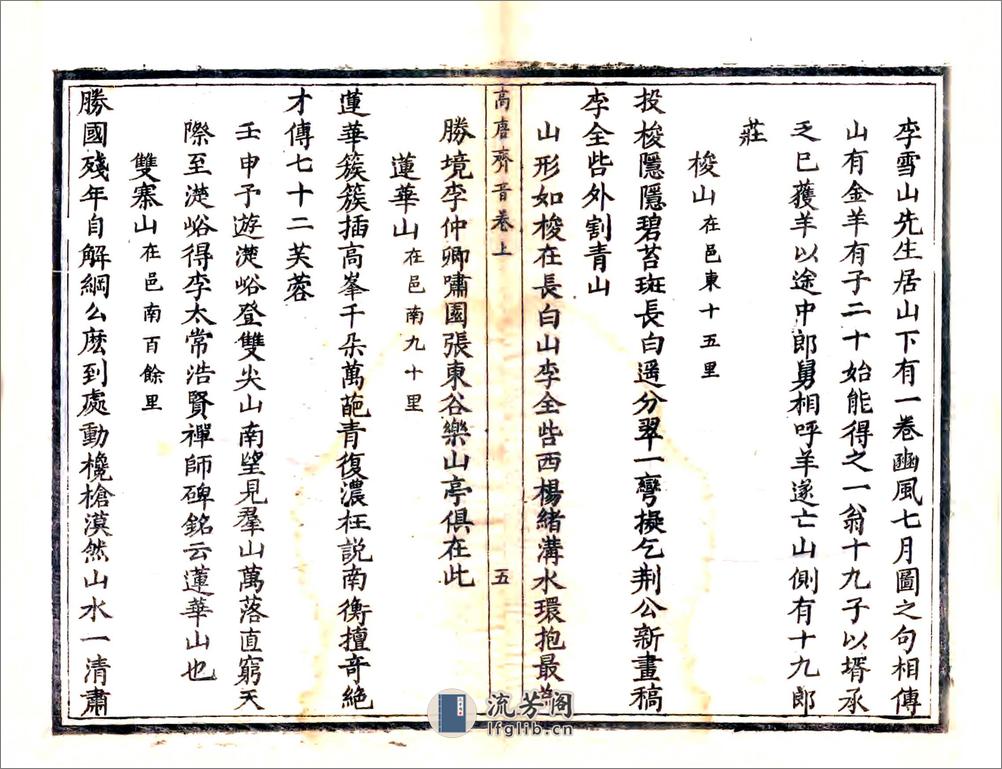 李雪山先生居山下有一卷豳風七月圖之句相傳
山有金羊有子二十始能得之一翁十九子以壻承
乏已獲羊以途中郎舅相呼羊遂亡山側有十九郎
莊
梭山在邑東十五里
投梭隱隱碧苔斑長白遥分翠一彎擬乞荆公新畫稿
李全砦外割青山
山形如梭在長白山李全砦西楊緒溝水環抱最為
高唐齊音卷上
五
勝境李仲卿嘯園張東谷樂山亭俱在此
蓮華山在邑南九十里
蓮華簇簇插高峯千朵萬葩青復濃枉説南衡擅奇絶
才傳七十二芙蓉
壬申予遊濋峪登雙尖山南望見羣山萬落直窮天
際至濋峪得李太常浩賢禪師碑銘云蓮華山也
雙寨山在邑南百餘里
勝國殘年自解綱么麽到處動欃槍漠然山水一清肅
流芳阁
lfglib.cn